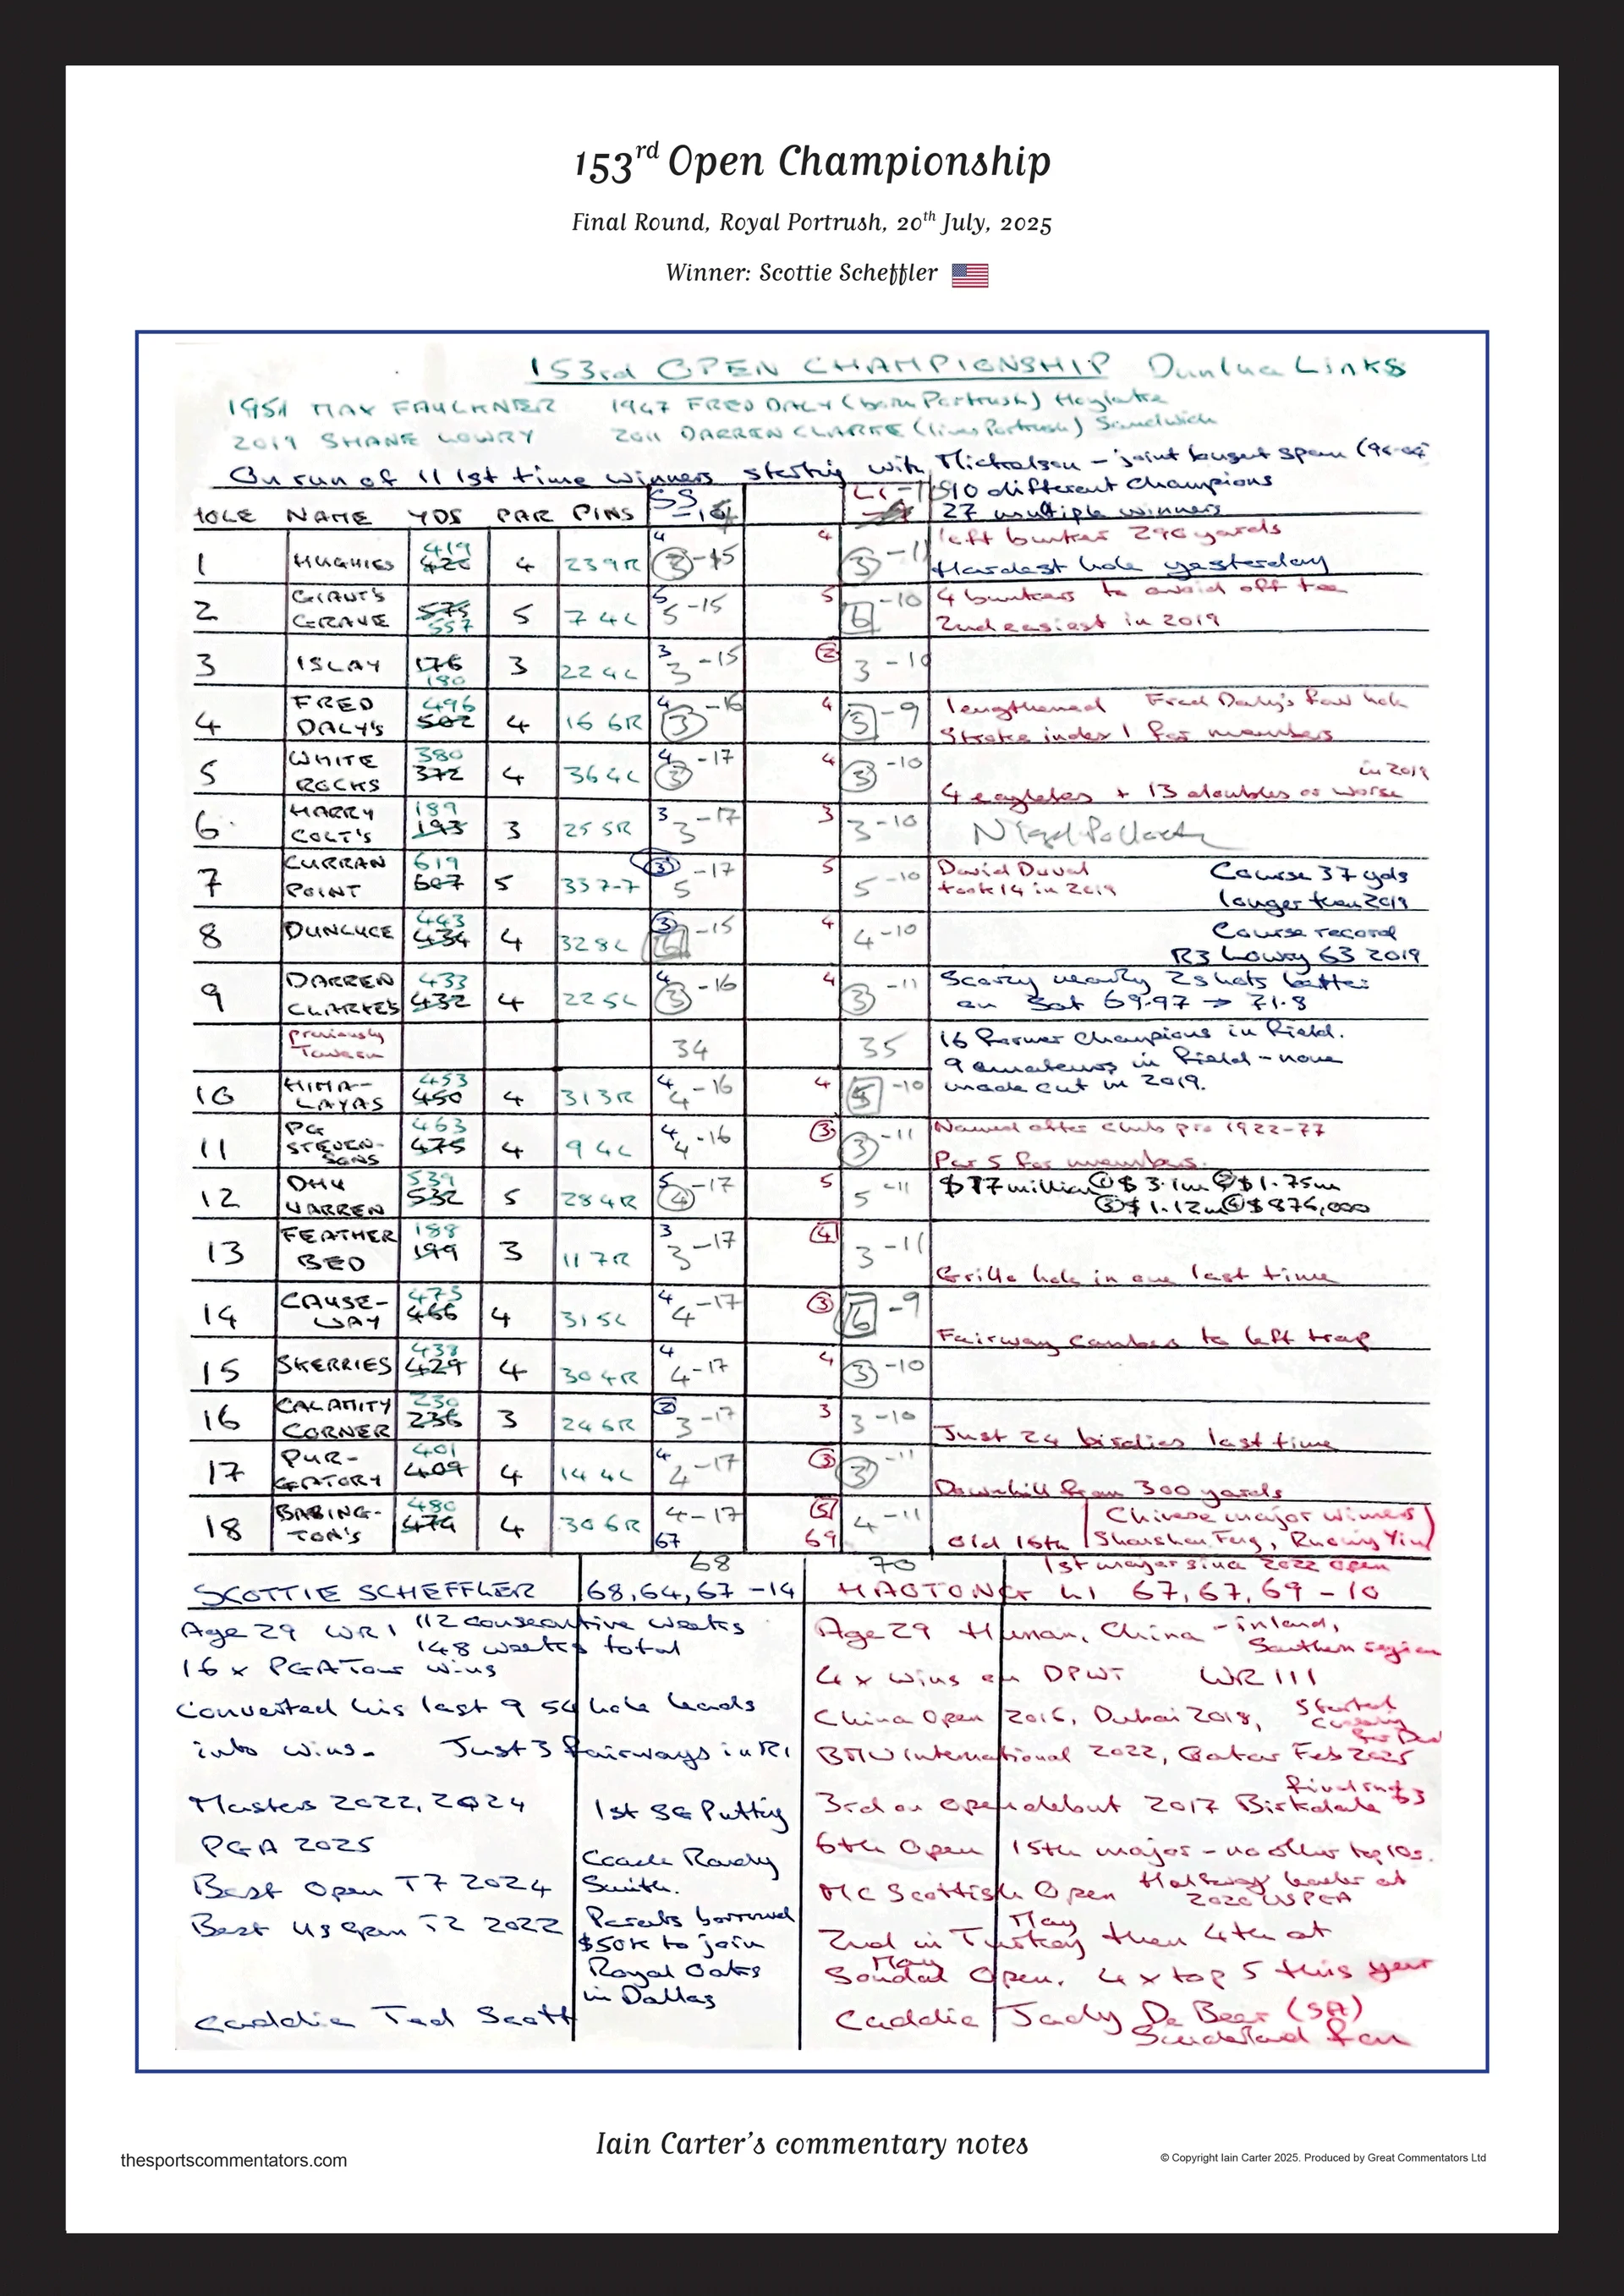 153rd Open Championship
Final Round, Royal Portrush, 20th July, 2025
Winner: Scottie Scheffler
153rd OPEN CHAMPIONSHIP Dunluce Links
1951 MAX FAULKNER 1947 FRED DALY (born Portrush) Hoylake
2019 SHANE LOWRY 2011 DARREN CLARKE (lives Portrush) Sandwich
On run of 11 1st time winners starting with Mickelson - joint longest span
10 different champions
27 multiple winners
HOLE NAME YDS PAR PINS SS LI
1 HUGHIES 419 426 4 239R 4 3 -15 4 3 -11 left bunker 296 yards
Hardest hole yesterday
2 GIANT'S GRAVE 575 557 5 74L 5 5 -15 5 6 -10 4 bunkers to avoid off tee
2nd easiest in 2019
3 ISLAY 176 180 3 224L 3 3 -15 2 3 -10
4 FRED DALY'S 496 502 4 16 6R 4 3 -16 4 5 -9 lengthened Fred Daly's fav hole
Stroke index 1 for members
5 WHITE ROCKS 380 372 4 364L 4 3 -17 4 3 -10 in 2019
4 eagles + 13 doubles or worse
6 HARRY COLT'S 189 193 3 25 5R 3 3 -17 3 3 -10
7 CURRAN POINT 619 607 5 337-7 3 5 -17 5 5 -10 David Duval
took 14 in 2019
Course 37 yds
longer than 2019
8 DUNLUCE 443 434 4 328L 3 6 -15 4 4 -10 Course record
R3 Lowry 63 2019
9 DARREN CLARKE'S 433 432 4 225L 4 3 -16 4 3 -11 Scoring nearly 2 shots better
on Sat 69.97 → 71.8
previously Tavern 34 35 16 former champions in field.
9 amateurs in field - none
made cut in 2019.
10 HIMA-LAYAS 453 450 4 313R 4 4 -16 4 5 -10
11 PG STEVEN-SONS 463 475 4 94L 4 4 -16 3 3 -11 Named after club pro 1922-77
Par 5 for members.
12 DHU VARREN 539 532 5 284R 5 4 -17 5 5 -11 $17 million ① $3.1m ② $1.75m
③ $1.12m ④ $876,000
13 FEATHER BED 188 199 3 11 7R 3 3 -17 4 3 -11 Grillo hole in one last time
14 CAUSE-WAY 473 466 4 315L 4 4 -17 3 6 -9 Fairway cambers to left trap
15 SKERRIES 433 429 4 304R 4 4 -17 4 3 -10
16 CALAMITY CORNER 230 236 3 246R 2 3 -17 3 3 -10 Just 24 birdies last time
17 PUR-GATORY 401 409 4 144L 4 4 -17 3 3 -11 Downhill from 300 yards
18 BABING-TON'S 480 474 4 306R 4 -17 67 5 69 4 -11 Old 16th
Chinese major winners
Shanshan Feng, Ruoning Yin
68 70 1st major since 2022 Open
SCOTTIE SCHEFFLER 68, 64, 67 -14
Age 29 WR1 112 consecutive weeks
148 weeks total
16 x PGA Tour wins
Converted his last 9 54 hole leads
into wins. Just 3 fairways in R1
Masters 2022, 2024
PGA 2025
Best Open T7 2024
Best US Open T2 2022
Caddie Ted Scott
1st SG Putting
Coach Randy
Smith.
Parents borrowed
$50K to join
Royal Oaks
in Dallas
HAOTONG LI 67, 67, 69 -10
Age 29 Hunan, China - inland,
Southern region
4 x wins on DPWT WR 111
China Open 2016, Dubai 2018,
BMW International 2022, Qatar Feb 2025
3rd on Open debut 2017 Birkdale
Final rnd 63
6th Open 15th major - no other top 10s.
MC Scottish Open Halfway leader at
2020 USPGA
2nd in Turkey May then 4th at
Soudal Open. May 4 x top 5 this year
Caddie Jady De Beer (SA)
Sunderland fan
Iain Carter's commentary notes
thesportscommentators.com
© Copyright Iain Carter 2025. Produced by Great Commentators Ltd